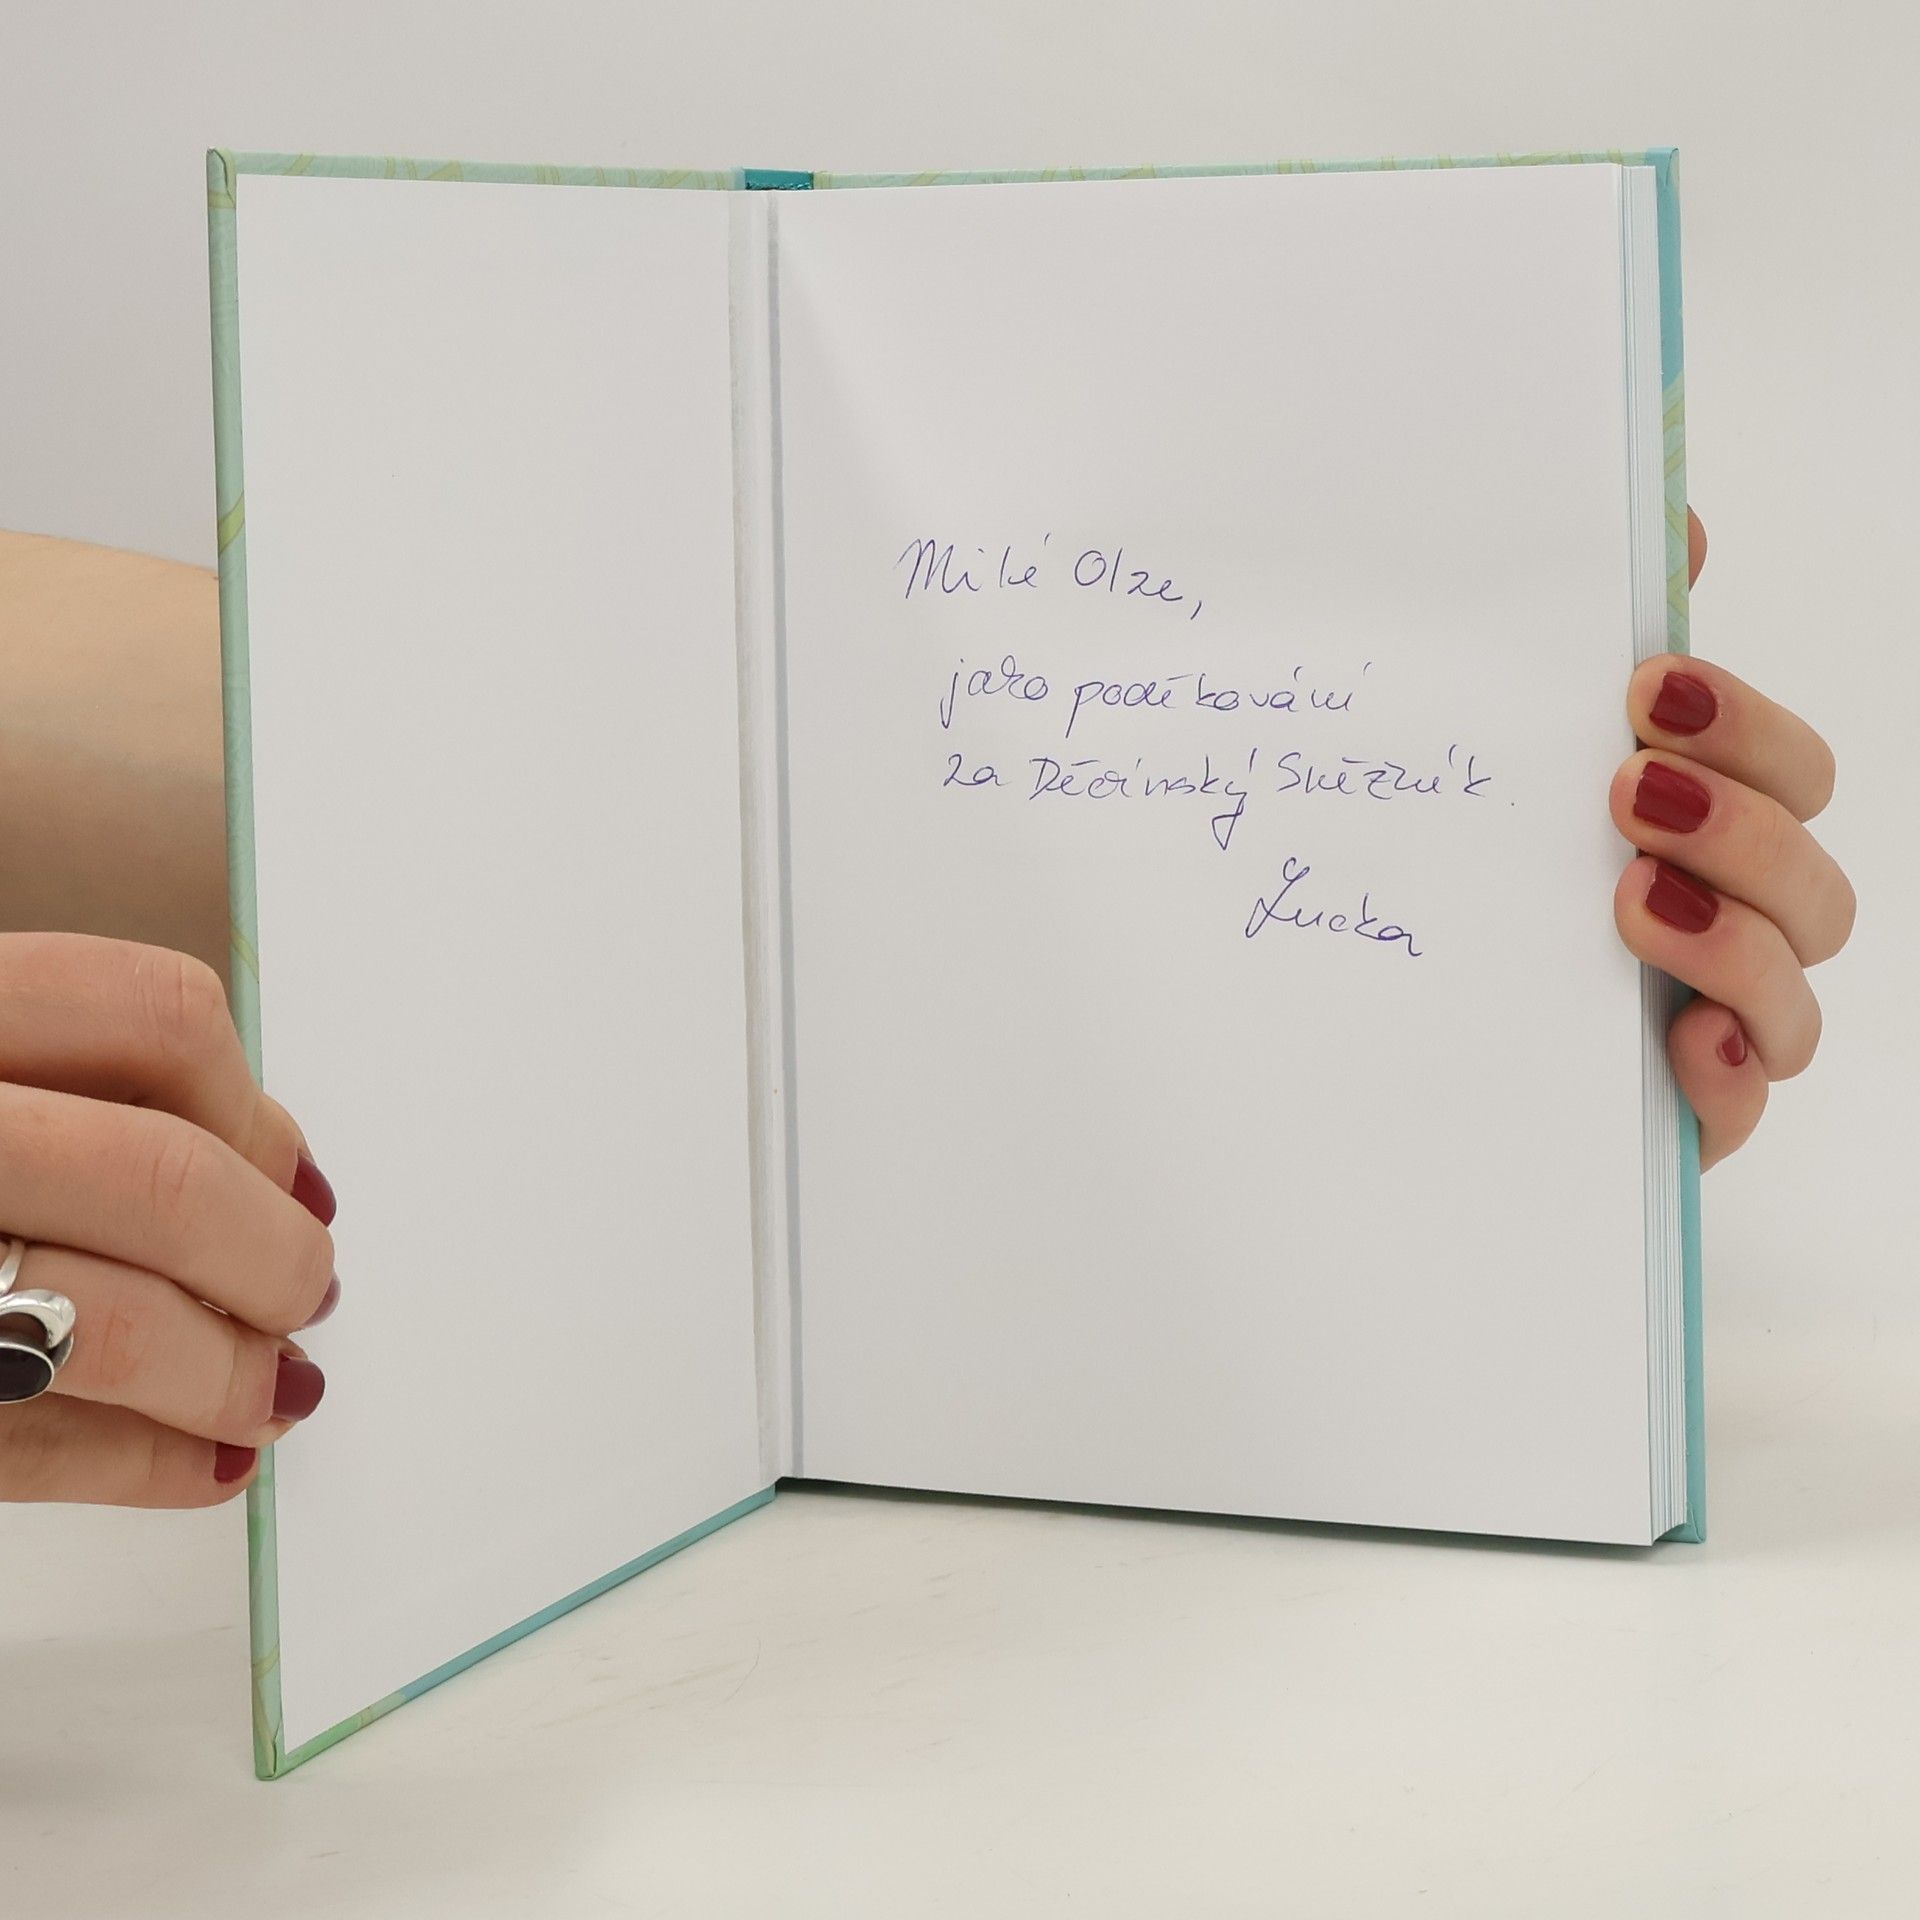 Milé Olze,
jako poděkování
za Děčínský Sněžník.
Lucka